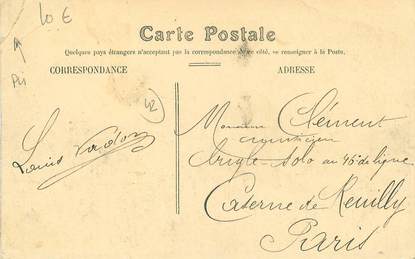 10 €
Carte Postale
Quelques pays étrangers n'acceptant pas la correspondance de ce côté, se renseigner à la Poste.
CORRESPONDANCE
ADRESSE
42
Monsieur Clément
Louis
au 46e de ligne
Caserne de Reuilly
Paris